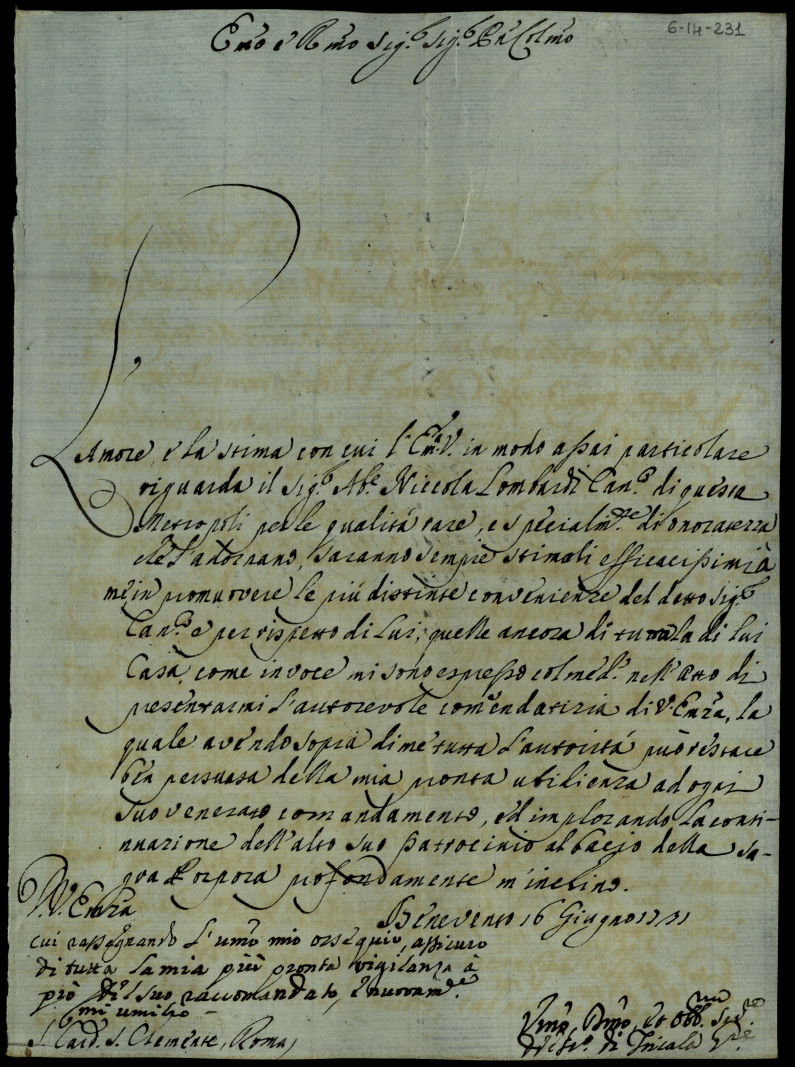 6-14-231
Emo e Rmo Sig.r Sig.r Pn Colmo
L'Amore, e la stima con cui l'Em.a V. in modo assai particolare
riguarda il Sig.r Ab.e Niccola Lombardi Can.co di questa
Metropoli per le qualità rare, e specialm.te di onoratezza
che l'adornano, saranno sempre stimoli efficacissimi à
me in promuovere le più distinte convenienze del detto Sig.r
Can.co e per rispetto di Lui, quelle ancora di tutta la di lui
Casa, come in voce mi sono espresso col med.o nell'atto di
presentarmi l'autorevole comendatizia di V. Enza, la
quale avendo sopra di me tutta l'autorità può restare
ben persuasa della mia pronta ubidienza ad ogni
suo venerato comandamento, ed implorando la conti-
nuazione dell'alto suo Patrocinio al bacio della Sa-
gra Porpora profondamente m'inchino.
D. V. Emza
Benevento 16 Giugno 1731
cui rassegnando l'umo mio ossequio, assicuro
di tutta la mia più pronta vigilanza à
prò del suo raccomandato, e nuovam.te
mi umilio -
S. Card. S. Clemente, Roma
Vmo, Dmo, ed Obb.mo Se.re